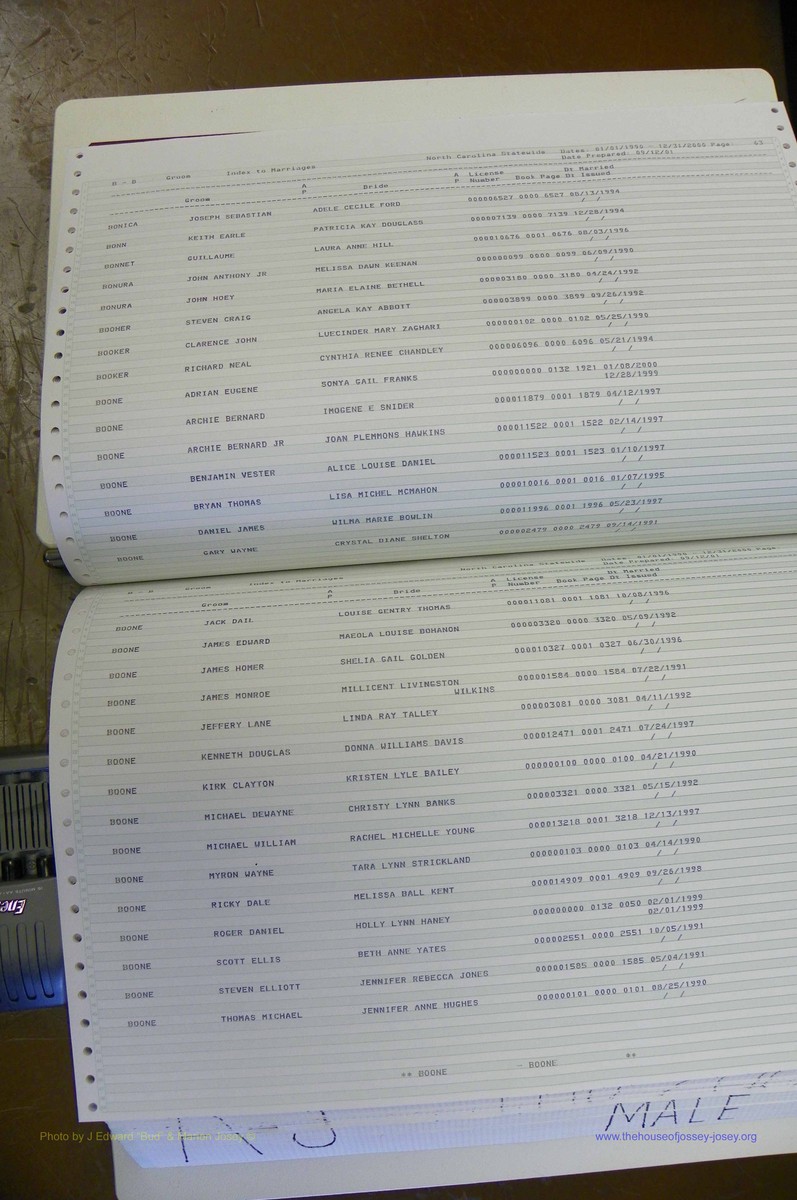 B - B Groom Index to Marriages North Carolina Statewide Dates: 01/01/1990 - 12/31/2005 Page: 63
Date Prepared: 09/12/01
A A License Dt Married
Groom P Bride P Number Book Page Dt Issued
BONICA JOSEPH SEBASTIAN ADELE CECILE FORD 000006527 0000 6527 08/13/1994
/ /
BONN KEITH EARLE PATRICIA KAY DOUGLASS 000007139 0000 7139 12/28/1994
/ /
BONNET GUILLAUME LAURA ANNE HILL 000010676 0001 0676 08/03/1996
/ /
BONURA JOHN ANTHONY JR MELISSA DAWN KEENAN 000000099 0000 0099 06/09/1990
/ /
BONURA JOHN HOEY MARIA ELAINE BETHELL 000003180 0000 3180 04/24/1992
/ /
BOOHER STEVEN CRAIG ANGELA KAY ABBOTT 000003899 0000 3899 09/26/1992
/ /
BOOKER CLARENCE JOHN LUECINDER MARY ZAGHARI 000000102 0000 0102 05/25/1990
/ /
BOOKER RICHARD NEAL CYNTHIA RENEE CHANDLEY 000006096 0000 6096 05/21/1994
/ /
BOONE ADRIAN EUGENE SONYA GAIL FRANKS 000000000 0132 1921 01/08/2000
12/28/1999
BOONE ARCHIE BERNARD IMOGENE E SNIDER 000011879 0001 1879 04/12/1997
/ /
BOONE ARCHIE BERNARD JR JOAN PLEMMONS HAWKINS 000011522 0001 1522 02/14/1997
/ /
BOONE BENJAMIN VESTER ALICE LOUISE DANIEL 000011523 0001 1523 01/10/1997
/ /
BOONE BRYAN THOMAS LISA MICHEL MCMAHON 000010016 0001 0016 01/07/1995
/ /
BOONE DANIEL JAMES WILMA MARIE BOWLIN 000011996 0001 1996 05/23/1997
/ /
BOONE GARY WAYNE CRYSTAL DIANE SHELTON 000002479 0000 2479 09/14/1991
B - B Groom Index to Marriages North Carolina Statewide Dates: 01/01/1990 - 12/31/2005 Page:
Date Prepared: 09/12/01
A A License Dt Married
Groom P Bride P Number Book Page Dt Issued
BOONE JACK DAIL LOUISE GENTRY THOMAS 000011081 0001 1081 10/08/1996
/ /
BOONE JAMES EDWARD MAEOLA LOUISE BOHANON 000003320 0000 3320 05/09/1992
/ /
BOONE JAMES HOMER SHELIA GAIL GOLDEN 000010327 0001 0327 06/30/1996
/ /
BOONE JAMES MONROE MILLICENT LIVINGSTON 000001584 0000 1584 07/22/1991
WILKINS / /
BOONE JEFFERY LANE LINDA RAY TALLEY 000003081 0000 3081 04/11/1992
/ /
BOONE KENNETH DOUGLAS DONNA WILLIAMS DAVIS 000012471 0001 2471 07/24/1997
/ /
BOONE KIRK CLAYTON KRISTEN LYLE BAILEY 000000100 0000 0100 04/21/1990
/ /
BOONE MICHAEL DEWAYNE CHRISTY LYNN BANKS 000003321 0000 3321 05/15/1992
/ /
BOONE MICHAEL WILLIAM RACHEL MICHELLE YOUNG 000013218 0001 3218 12/13/1997
/ /
BOONE MYRON WAYNE TARA LYNN STRICKLAND 000000103 0000 0103 04/14/1990
/ /
BOONE RICKY DALE MELISSA BALL KENT 000014909 0001 4909 09/26/1998
/ /
BOONE ROGER DANIEL HOLLY LYNN HANEY 000000000 0132 0050 02/01/1999
02/01/1999
BOONE SCOTT ELLIS BETH ANNE YATES 000002551 0000 2551 10/05/1991
/ /
BOONE STEVEN ELLIOTT JENNIFER REBECCA JONES 000001585 0000 1585 05/04/1991
/ /
BOONE THOMAS MICHAEL JENNIFER ANNE HUGHES 000000101 0000 0101 08/25/1990
/ /
** BOONE - BOONE **
MALE
Photo by J Edward "Bud" & Marion Josey ©
www.thehouseofjossey-josey.org